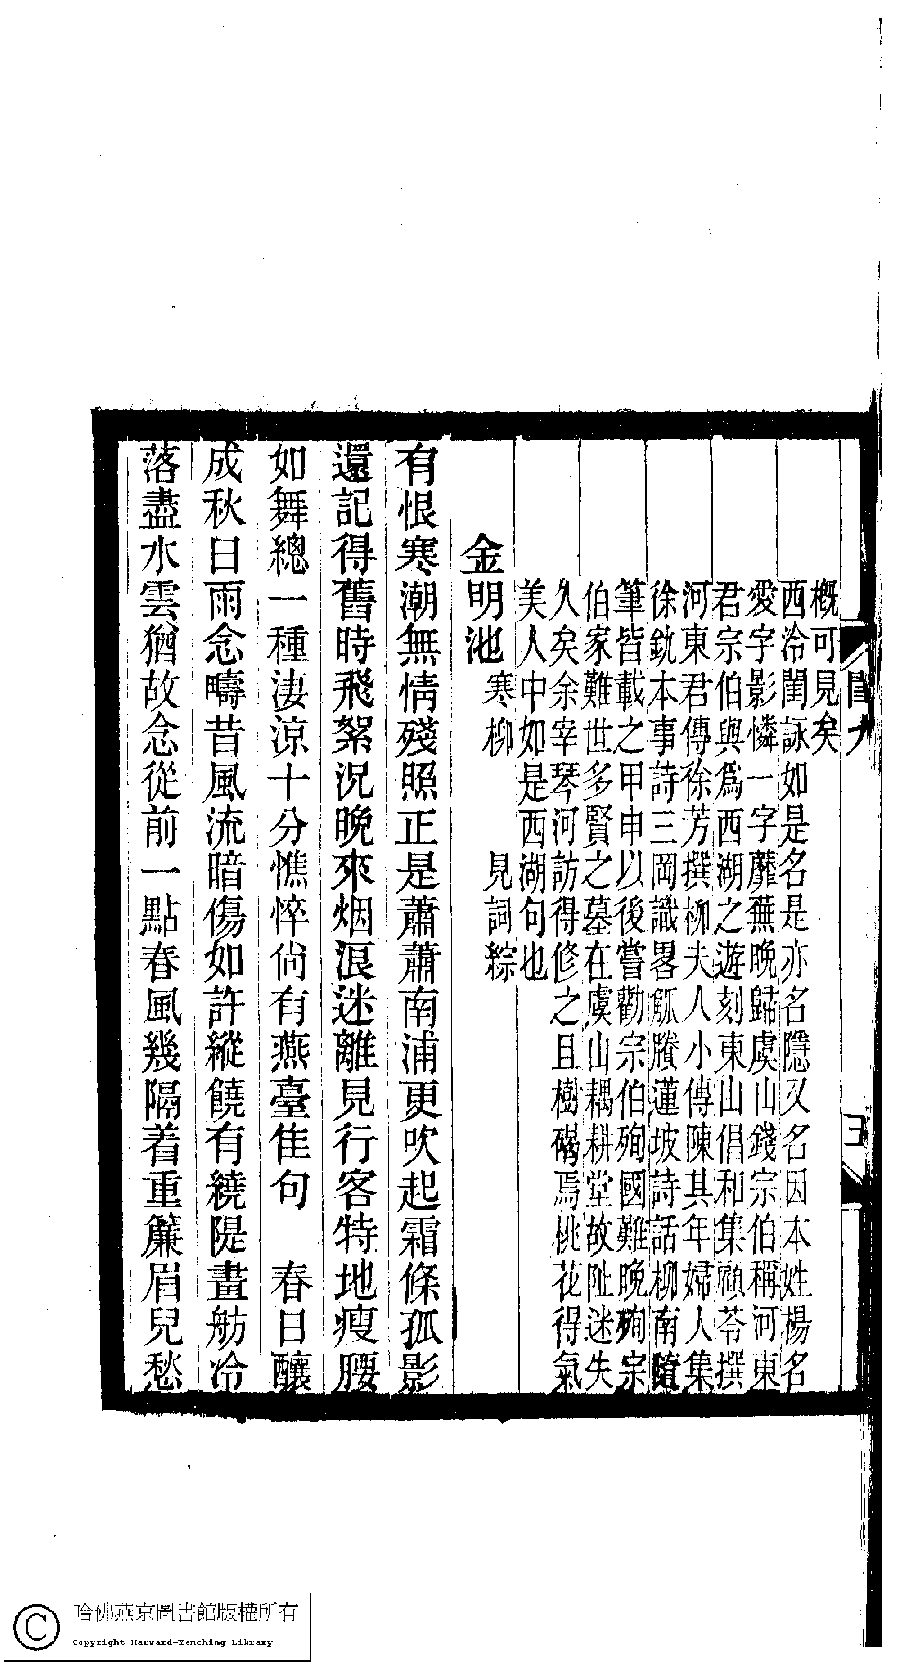 概可見矣
西泠閨詠如是名是亦名隱又名因本姓楊名
愛字影憐一字蘼蕪晚歸虞山錢宗伯稱河東
君宗伯與為西湖之遊刻東山倡和集顧苓撰
河東君傳徐芳撰柳夫人小傳陳其年婦人集
徐釚本事詩三岡識畧觚賸蓮坡詩話柳南隨
筆皆載之甲申以後嘗勸宗伯殉國難晚殉宗
伯家難世多賢之墓在虞山耦耕堂故阯迷失
久矣余宰琴河訪得修之且樹碣焉桃花得氣
美人中如是西湖句也
金明池 寒柳 見詞綜
有恨寒潮無情殘照正是蕭蕭南浦更吹起霜條孤影
還記得舊時飛絮況晚來烟浪迷離見行客特地瘦腰
如舞總一種淒涼十分憔悴尚有燕臺佳句 春日釀
成秋日雨念疇昔風流暗傷如許縱饒有繞隄畫舫冷
落盡水雲猶故念從前一點春風幾隔着重簾眉兒愁
哈佛燕京圖書館版權所有
Copyright Harvard-Yenching Library